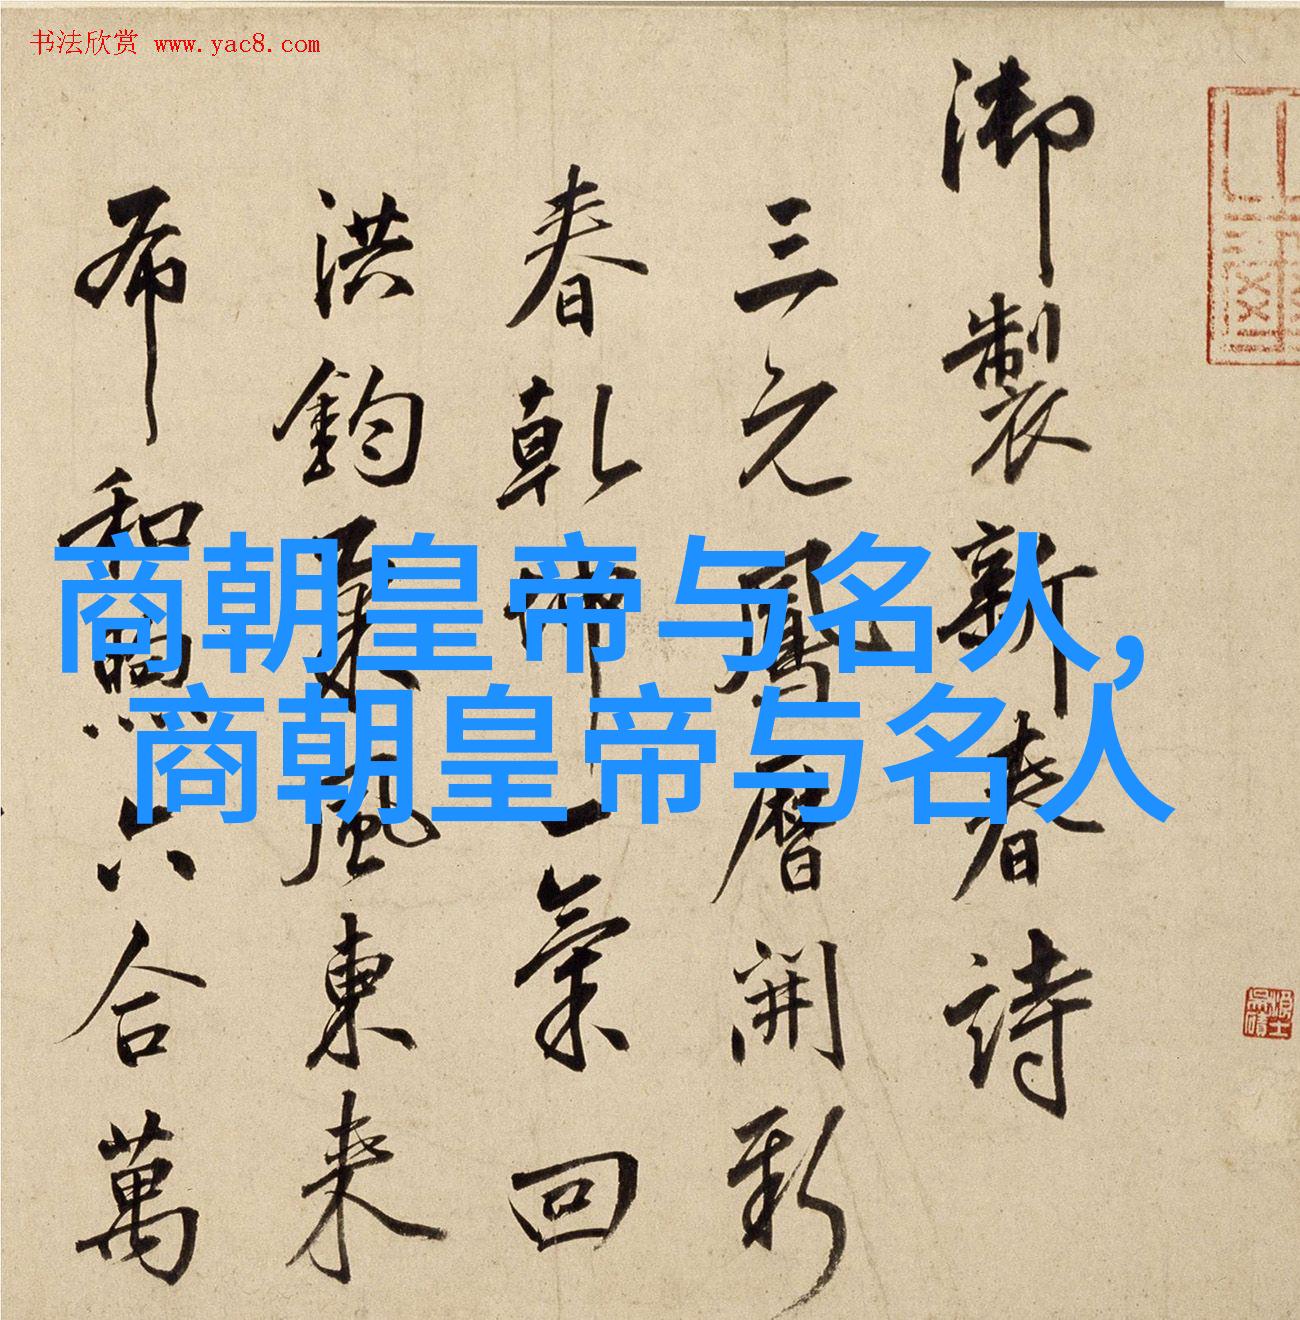 书法欣赏 www.yac8.com
御製新春詩
三元鳳曆開新
春乾坤一氣回
洪鈞風東来
布和煦六合萬
商朝皇帝与名人，
商朝皇帝与名人